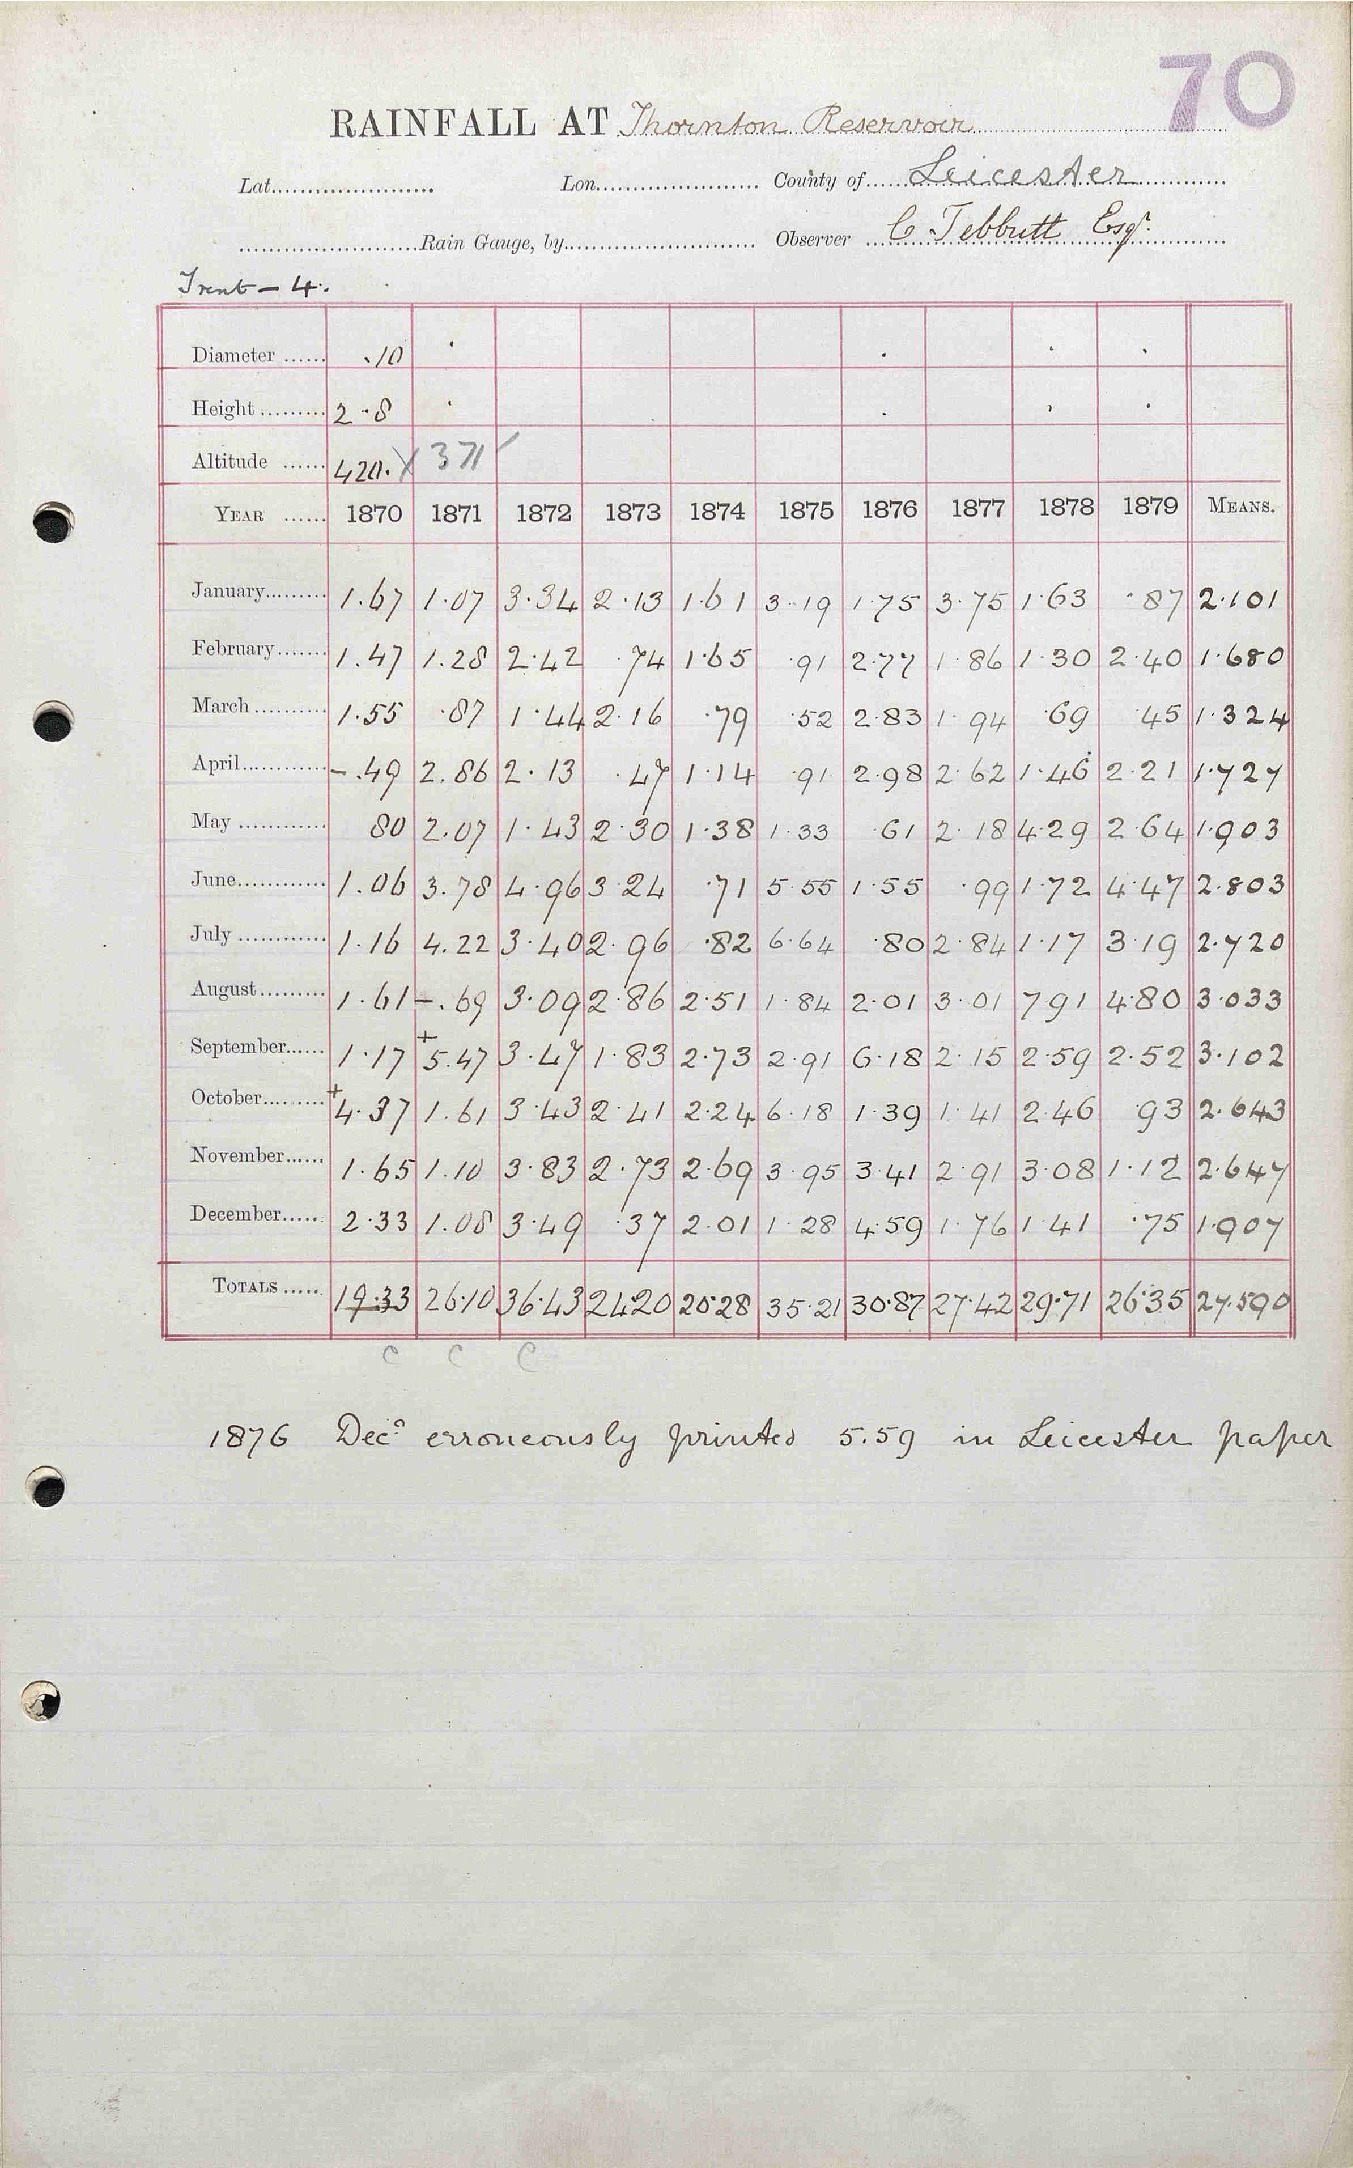 70
RAINFALL AT Thornton Reservoir
Lat. Lon. County of Leicester
Rain Gauge, by Observer C Tebbutt Esqr.
Trent – 4.
Diameter ...... .10
Height ......... 2.8
Altitude ...... 420. X 371
YEAR ...... 1870 1871 1872 1873 1874 1875 1876 1877 1878 1879 MEANS.
January......... 1.67 1.07 3.34 2.13 1.61 3.19 1.75 3.75 1.63 .87 2.101
February....... 1.47 1.28 2.42 .74 1.65 .91 2.77 1.86 1.30 2.40 1.680
March .......... 1.55 .87 1.44 2.16 .79 .52 2.83 1.94 .69 .45 1.324
April............ – .49 2.86 2.13 .47 1.14 .91 2.98 2.62 1.46 2.21 1.727
May ............ 80 2.07 1.43 2.30 1.38 1.33 .61 2.18 4.29 2.64 1.903
June............ 1.06 3.78 4.96 3.24 .71 5.55 1.55 .99 1.72 4.47 2.803
July ............ 1.16 4.22 3.40 2.96 .82 6.64 .80 2.84 1.17 3.19 2.720
August......... 1.61 – .69 3.09 2.86 2.51 1.84 2.01 3.01 7.91 4.80 3.033
September...... 1.17 + 5.47 3.47 1.83 2.73 2.91 6.18 2.15 2.59 2.52 3.102
October......... + 4.37 1.61 3.43 2.41 2.24 6.18 1.39 1.41 2.46 .93 2.643
November...... 1.65 1.10 3.83 2.73 2.69 3.95 3.41 2.91 3.08 1.12 2.647
December...... 2.33 1.08 3.49 .37 2.01 1.28 4.59 1.76 1.41 .75 1.907
TOTALS ..... 19.33 26.10 36.43 24.20 20.28 35.21 30.87 27.42 29.71 26.35 27.590
C C C
1876 Decr erroneously printed 5.59 in Leicester paper